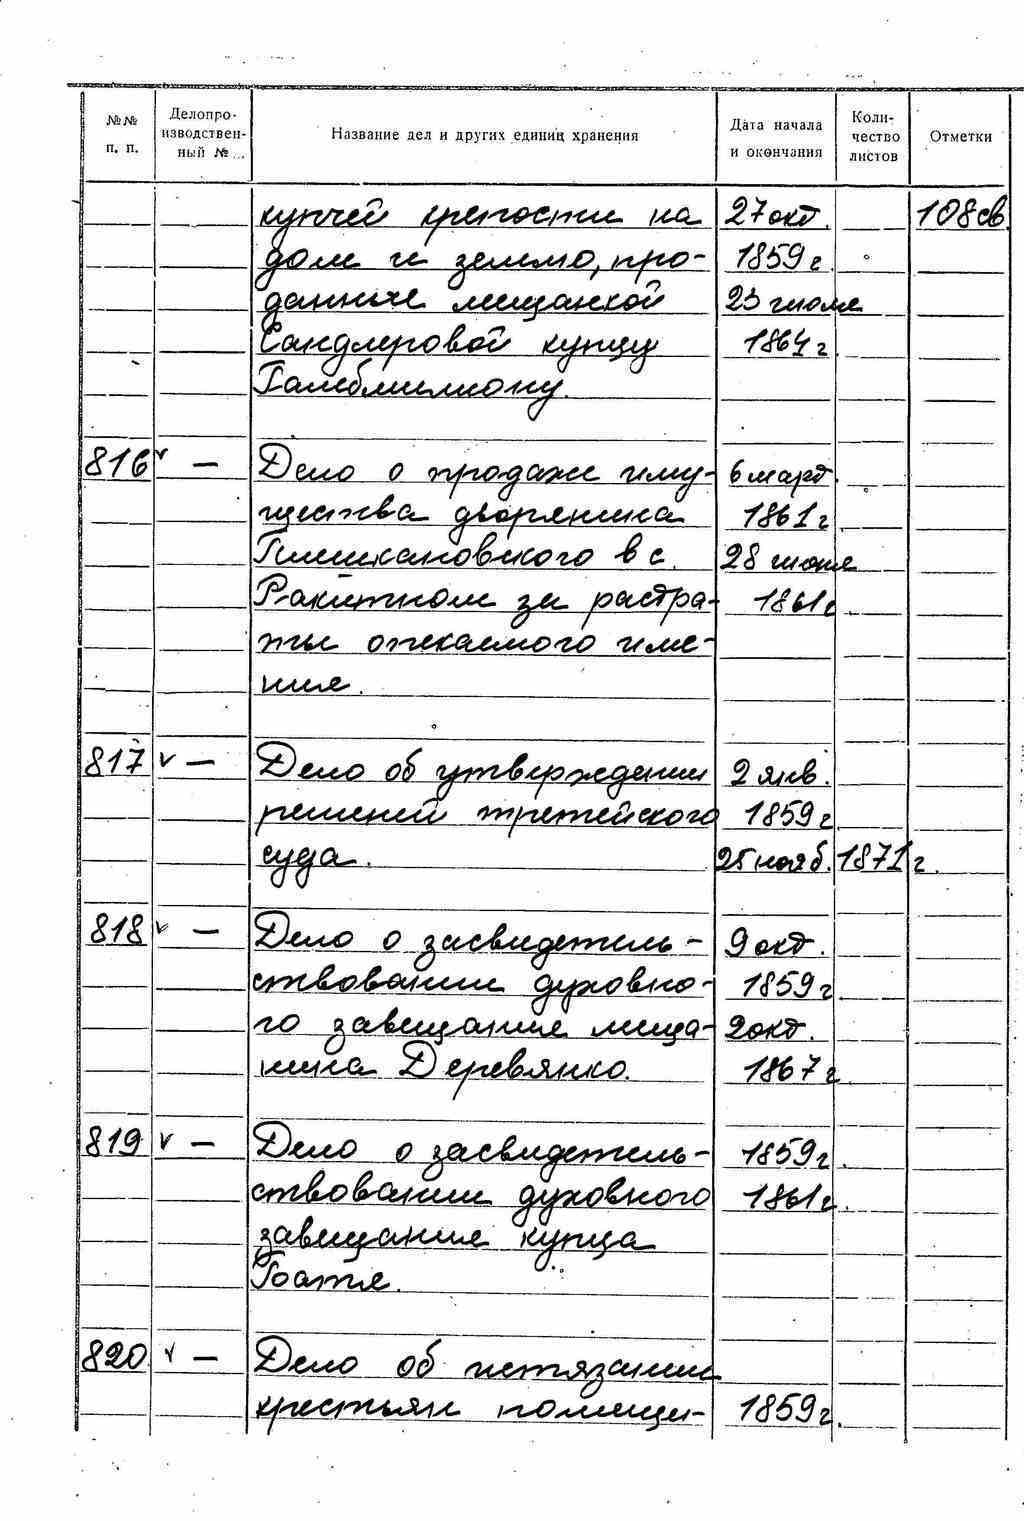 №№ п. п. Делопроизводственный №... Название дел и других единиц хранения Дата начала и окончания Количество листов Отметки
купчей крепости на 27 окт. 108 св.
дом и землю, про- 1859 г.
данные мещанкой 23 июля
Сандлеровой купцу 1864 г.
816 v — Дело о продаже иму- 6 март.
щества дворянина 1861 г.
в с. 28 июня
Ракитном за растра- 1861 г.
ты опекаемого име-
ния.
817 v — Дело об утверждении 2 янв.
решений третейского 1859 г.
суда. 25 нояб. 1871 г.
818 v — Дело о засвидетель- 9 окт.
ствовании духовно- 1859 г.
го завещания меща- 2 окт.
нина Деревянко. 1867 г.
819 v — Дело о засвидетель- 1859 г.
ствовании духовного 1861 г.
завещания купца
820 v — Дело об истязании
крестьян помещи- 1859 г.